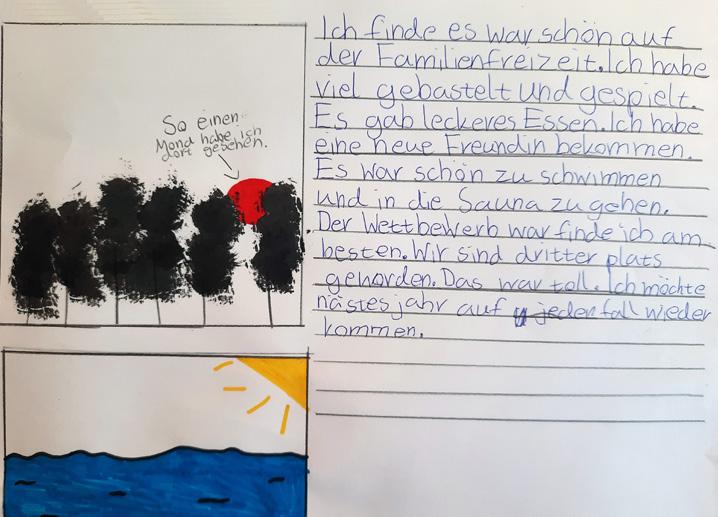 So einen
Mond habe ich
dort gesehen.
Ich finde es war schön auf
der Familienfreizeit. Ich habe
viel gebastelt und gespielt.
Es gab leckeres Essen. Ich habe
eine neue Freundin bekommen.
Es war schön zu schwimmen
und in die Sauna zu gehen.
Der Wettbewerb war finde ich am
besten. Wir sind dritter plats
geworden. Das war toll. Ich möchte
nästes jahr auf jeden fall wieder
kommen.